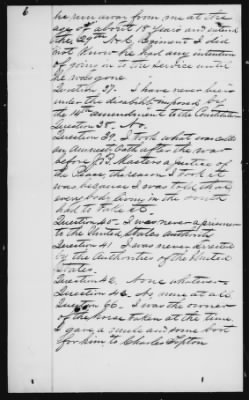 6
he run away from me at the
age of about 18 years and joined
the 29th N.C. Regiment I did
not know he had any intention
of going in to the service until
he was gone
Question 37. I have never been
under the disability imposed by
the 14th amendment to the Constitution
Question 38. No.
Question 39 I took what was called
an Amnesty Oath after the war
before J.D. Masters a justice of
the Peace, the reason I took it
was because I was told that
every body living in the south
had to take it
Question 40. I was never a prisoner
to the United States authority
Question 41 I was never arrested
by the Authorities of the United
States.
Question 42. None whatever
Question 43. No none at all
Question 66. I was the owner
of the horse taken at the time.
I gave a mule and some boot
for him to Charles Tipton